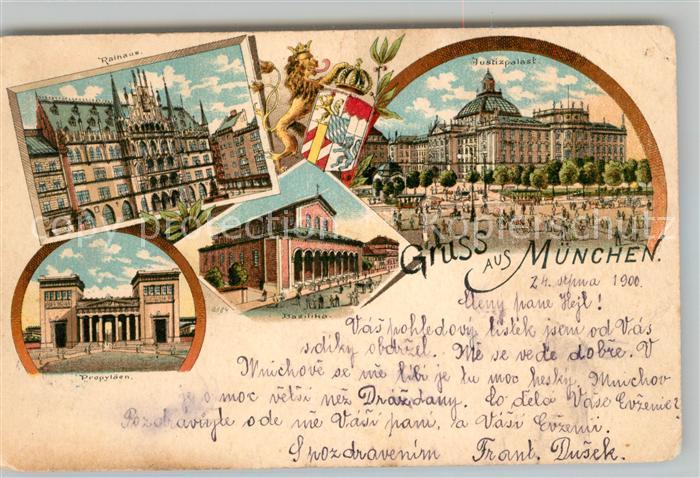 Rathaus.
Justizpalast
Basilika.
Propyläen.
Gruss aus München.
24. srpna 1900.
Ctěny pane Hejl!
Váš pohledový lístek jsem od Vás
s díky obdržel. Mě se vede dobře. V
Mnichově se mě líbí je tu moc hesky. Mnichov
je o moc větší než Drážďany. Co dělá Vaše Evženie?
Pozdravujte ode mě Váší paní, a Váší Evženii.
S pozdravením Frant. Dušek.